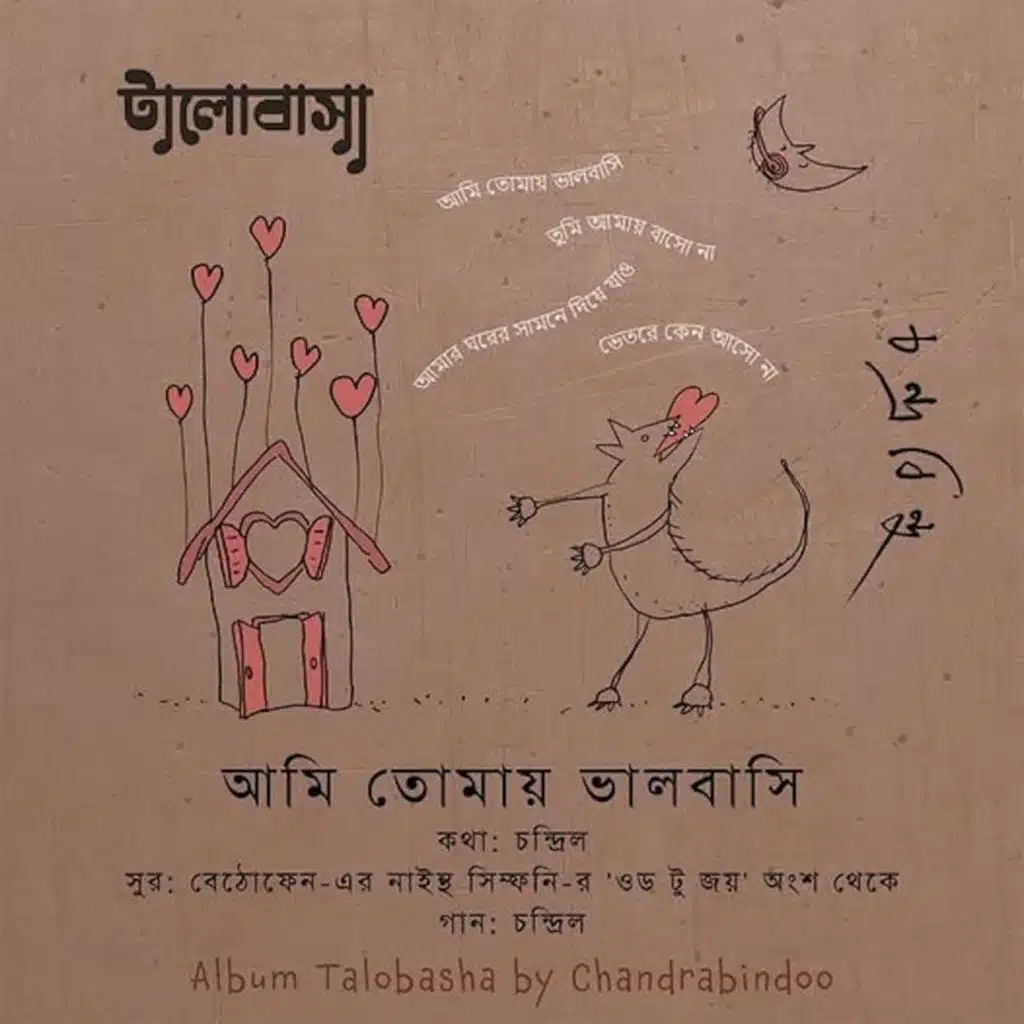 টালোবাসা
আমি তোমায় ভালবাসি
তুমি আমায় বাসো না
আমার ঘরের সামনে দিয়ে যাও
ভেতরে কেন আসো না
আমি তোমায় ভালবাসি
কথা: চন্দ্রিল
সুর: বেঠোফেন-এর নাইন্থ সিম্ফনি-র 'ওড টু জয়' অংশ থেকে
গান: চন্দ্রিল
Album Talobasha by Chandrabindoo